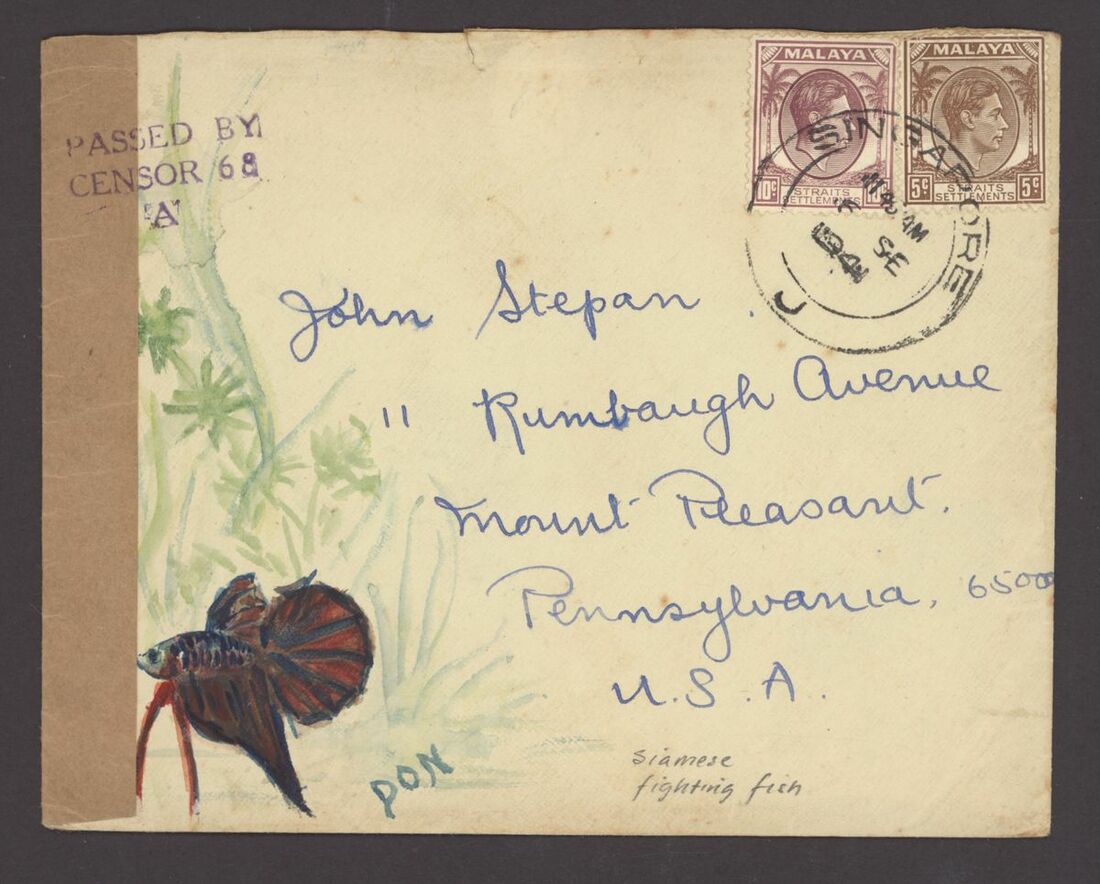 MALAYA
MALAYA
10¢ STRAITS SETTLEMENTS
5¢ STRAITS SETTLEMENTS 5¢
SINGAPORE
AM
6 SE
J
PASSED BY
CENSOR 68
"A"
John Stepan
11 Rumbaugh Avenue
Mount Pleasant.
Pennsylvania, 6500
U.S.A.
Siamese
fighting fish
DON